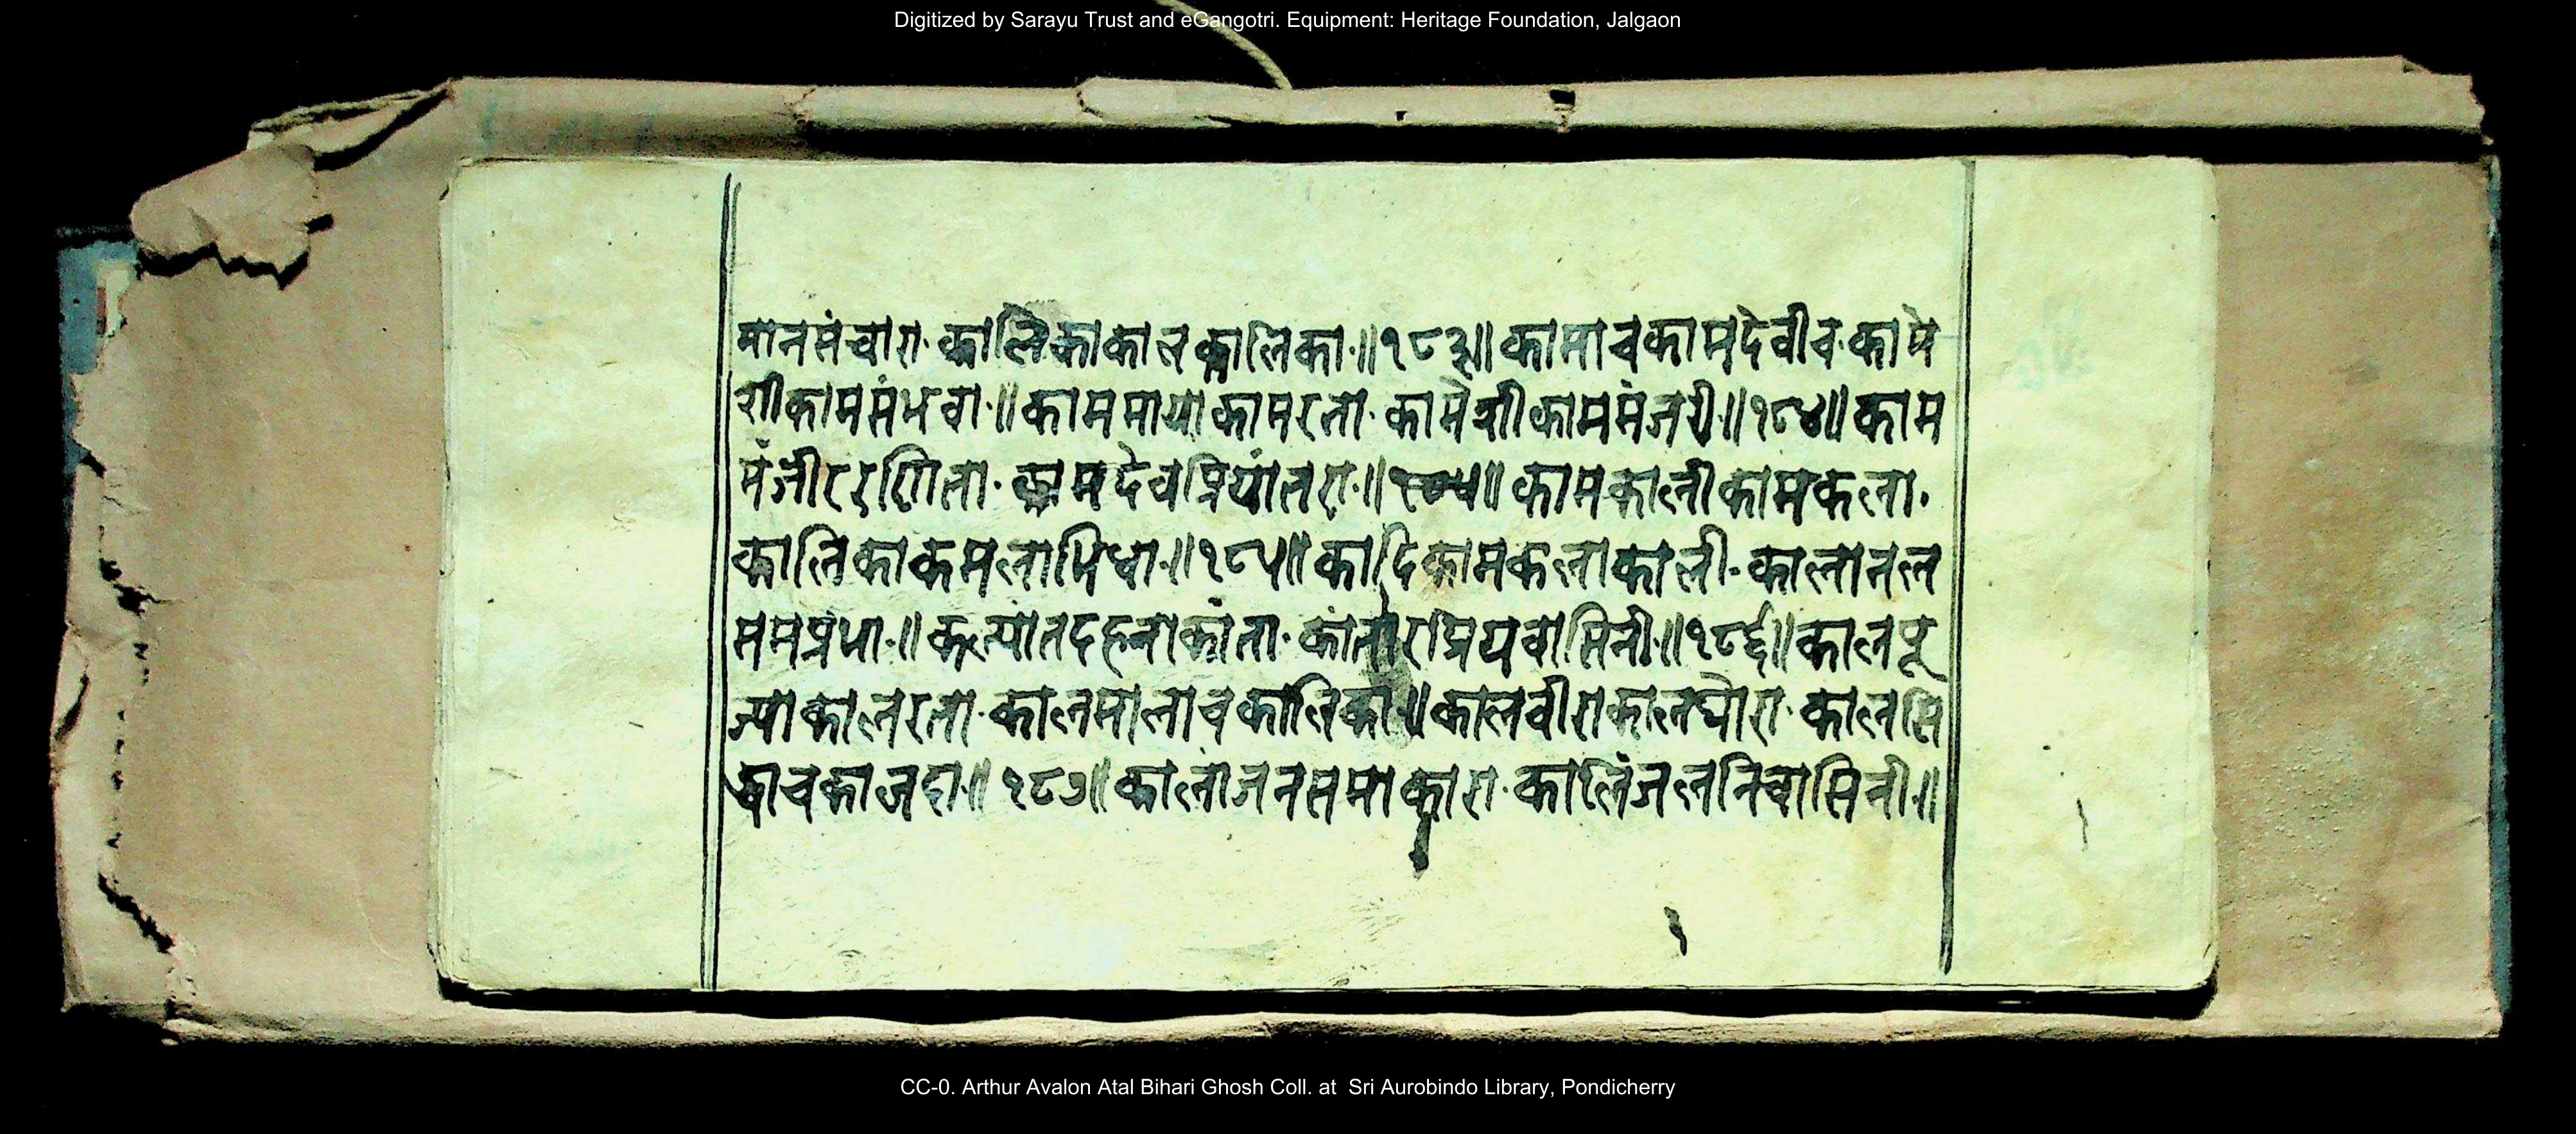 Digitized by Sarayu Trust and eGangotri. Equipment: Heritage Foundation, Jalgaon
मानसंचारा· कालिकाकालकालिका·॥१८३॥कामाचकामदेवीच·कामे
शीकामसंभवा·॥काममायाकामरता· कामेशीकाममंजरी·॥१८४॥काम
मंजीररणिता· कामदेवप्रियांतरा·॥ ॥कामकालीकामकला·
कालिकाकमलाभिधा·॥१८५॥कादिकामकलाकाली·कालानल
समप्रभा·॥कल्पांतदहनाकांता·कांतारप्रियवासिनी·॥१८६॥कालपू
ज्याकालरता·कालमालाचकालिका॥कालवीराकालघोरा·कालसि
द्धाचकालदा·॥१८७॥कालांजनसमाकारा·कालिंजलनिवासिनी·॥
CC-0. Arthur Avalon Atal Bihari Ghosh Coll. at Sri Aurobindo Library, Pondicherry